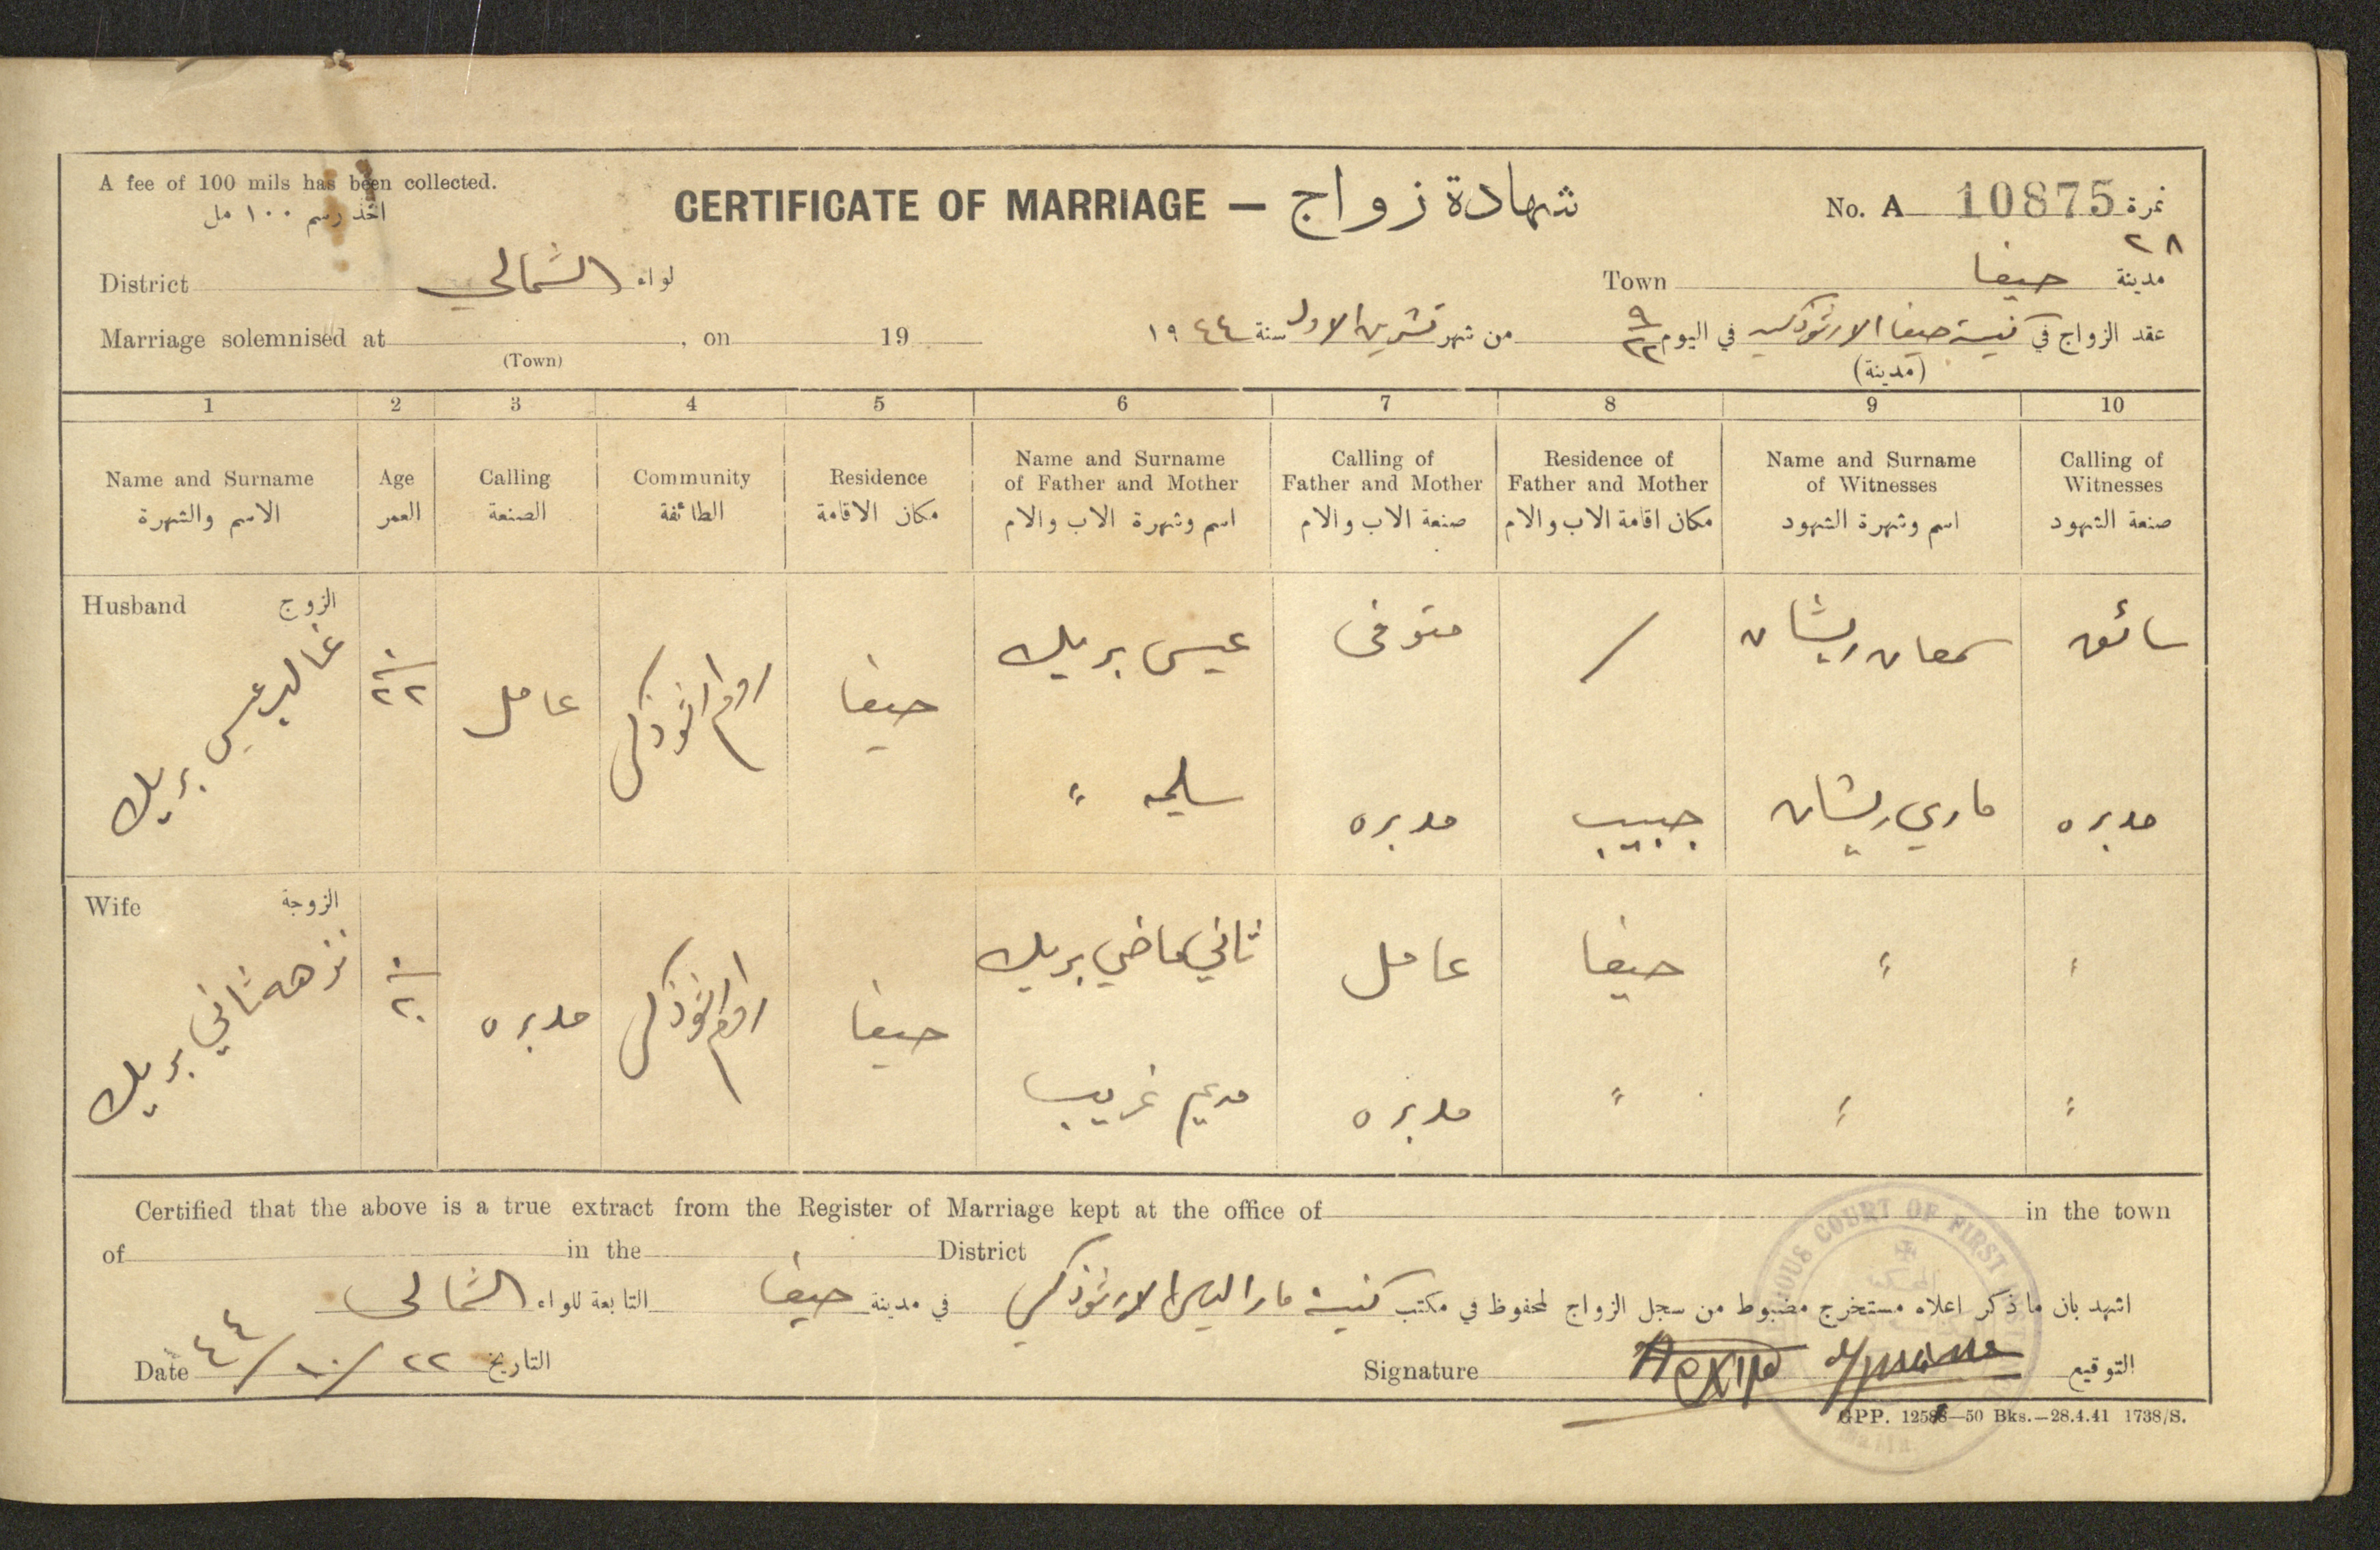 A fee of 100 mils has been collected.
اخذ رسم ١٠٠ مل
CERTIFICATE OF MARRIAGE — شهادة زواج
No. A 10875 نمرة
٢٨
District الشمالي لواء
Town حيفا مدينة
Marriage solemnised at , on 19
(Town)
عقد الزواج في كنيسة حيفا الارثوذكسيه في اليوم ٩/٢٢ من شهر تشرين الاول سنة ١٩٤٤
(مدينة)
1 2 3 4 5 6 7 8 9 10
Name and Surname
الاسم والشهرة
Age
العمر
Calling
الصنعة
Community
الطائفة
Residence
مكان الاقامة
Name and Surname
of Father and Mother
اسم وشهرة الاب والام
Calling of
Father and Mother
صنعة الاب والام
Residence of
Father and Mother
مكان اقامة الاب والام
Name and Surname
of Witnesses
اسم وشهرة الشهود
Calling of
Witnesses
صنعة الشهود
Husband الزوج
غالب عيسى بريك
٢٢
عامل
روم ارثوذكس
حيفا
عيسى بريك
متوفى
/
سمعان ريشان
سائق
سليمه "
مدبره
ماري ريشان
مدبره
Wife الزوجة
نزهه ثاني بريك
٢٠
مدبره
روم ارثوذكس
حيفا
ثاني ماضي بريك
عامل
حيفا
"
"
مريم غريب
مدبره
"
"
"
Certified that the above is a true extract from the Register of Marriage kept at the office of in the town
of in the District
اشهد بان ما ذكر اعلاه مستخرج مضبوط من سجل الزواج المحفوظ في مكتب كنيسة مار الياس الارثوذكس في مدينة حيفا التابعة للواء الشمالي
Date ٢٢/١٠/٤٤ التاريخ
Signature التوقيع
COURT OF FIRST
GPP. 1258—50 Bks.—28.4.41 1738/S.